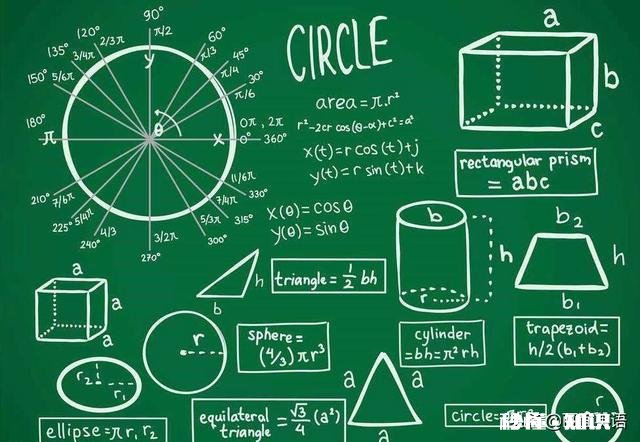 90°
π/2
120°
2/3π
60°
π/3
135°
3/4π
45°
π/4
150°
5/6π
30°
π/6
y
θ
180°
π
x
0π, 2π
0°
360°
210°
7/6π
11/6π
330°
225°
5/4π
7/4π
315°
240°
4/3
3/2π
5/3π
300°
270°
CIRCLE
area = π.r²
r²-2cr cos(θ-α)+c²=a²
x(t)=r cos(t)+j
y(t)=r sin(t)+k
x(θ)=cosθ
y(θ)=sinθ
a
b
c
rectangular prism
= abc
h
b
triangle = 1/2 bh
b
h
r
cylinder
=bh=π²rh
b2
h
b1
trapezoid=
h/2(b1+b2)
a
a
a
r
sphere=
(4/3)πr³
r2
r1
ellipse=πr1r2
a
a
a
equilateral
triangle = √3/4 (a²)
r
circle=